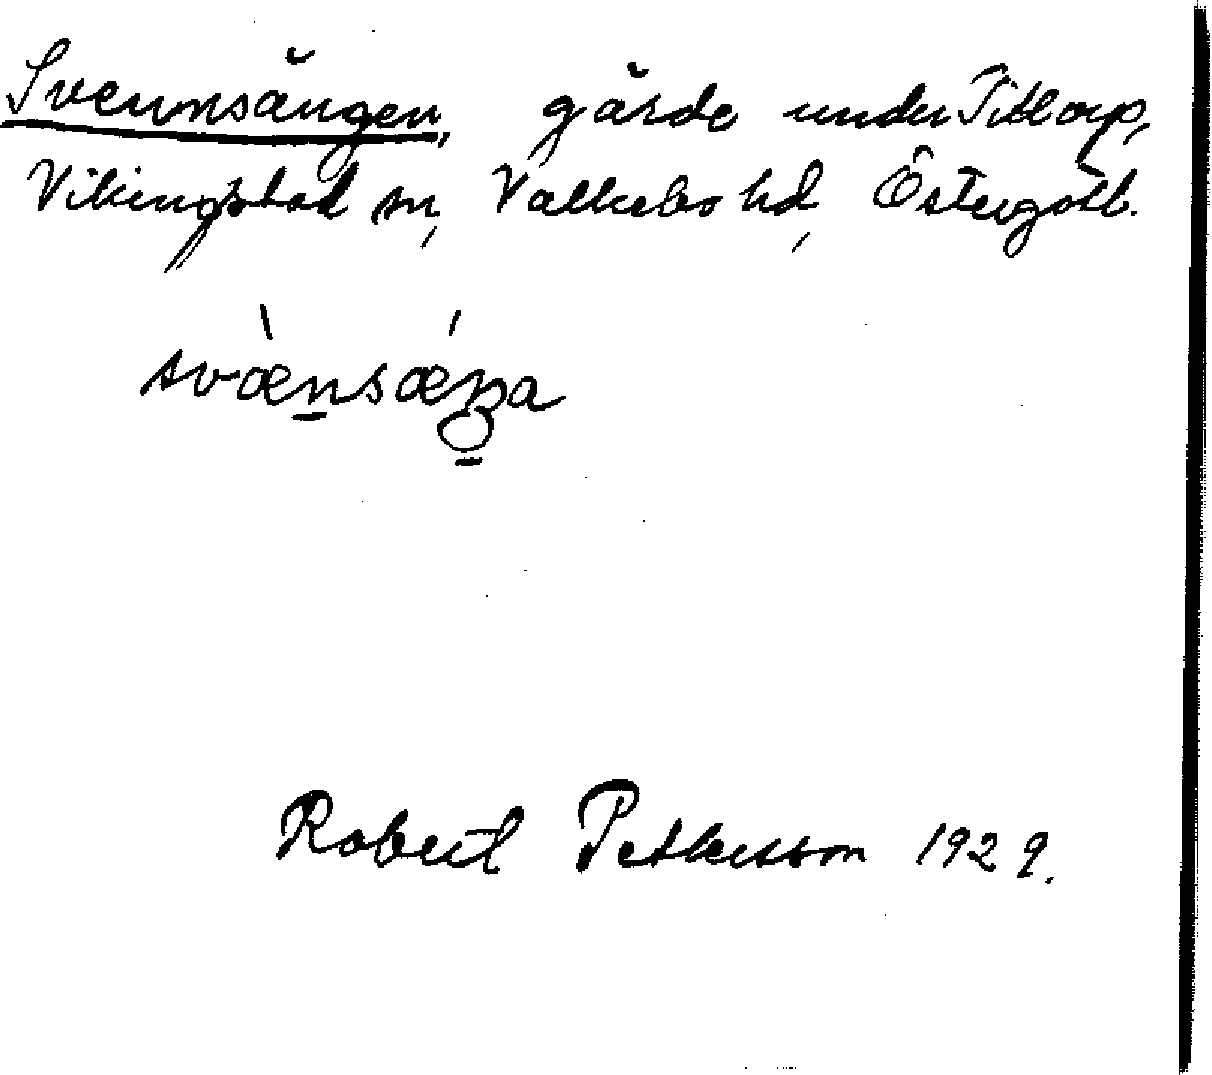 Svennsängen, gärde under Titlorp,
Vikingstad sn, Valkebo hd, Östergötl.
svæ̀nsǽŋa
Robert Pettersson 1929.